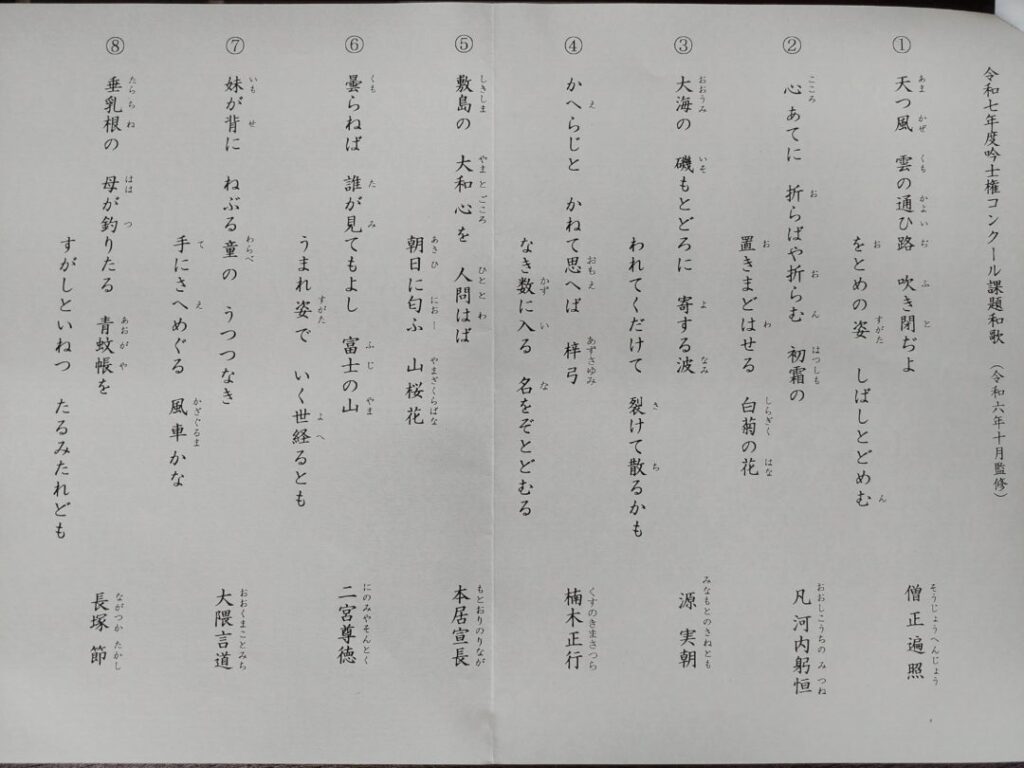 令和七年度吟士権コンクール課題和歌 （令和六年十月監修）
①
天つ風 雲の通ひ路 吹き閉ぢよ
をとめの姿 しばしとどめむ
僧正遍照
②
心あてに 折らばや折らむ 初霜の
置きまどはせる 白菊の花
凡河内躬恒
③
大海の 磯もとどろに 寄する波
われてくだけて 裂けて散るかも
源 実朝
④
かへらじと かねて思へば 梓弓
なき数に入る 名をぞとどむる
楠木正行
⑤
敷島の 大和心を 人問はば
朝日に匂ふ 山桜花
本居宣長
⑥
曇らねば 誰が見てもよし 富士の山
うまれ姿で いく世経るとも
二宮尊徳
⑦
妹が背に ねぶる童の うつつなき
手にさへめぐる 風車かな
大隈言道
⑧
垂乳根の 母が釣りたる 青蚊帳を
すがしといねつ たるみたれども
長塚 節